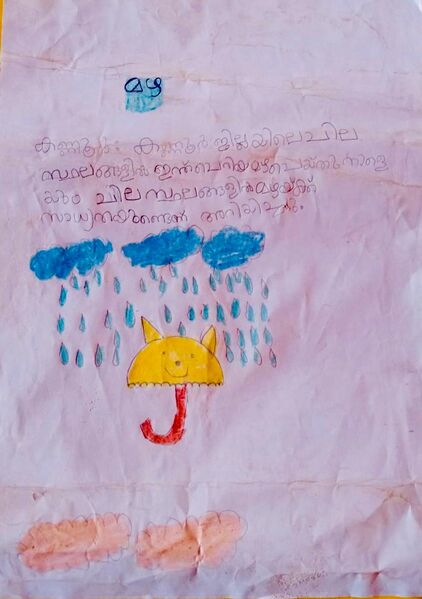 മഴ
കണ്ണൂർ: കണ്ണൂർ ജില്ലയിലെ ചില
സ്ഥലങ്ങളിൽ ഇന്ന് ചെറിയ മഴ പെയ്തു. നാളെ
യും ചില സ്ഥലങ്ങളിൽ മഴയ്ക്ക്
സാധ്യതയുണ്ടെന്ന് അറിയിച്ചു.